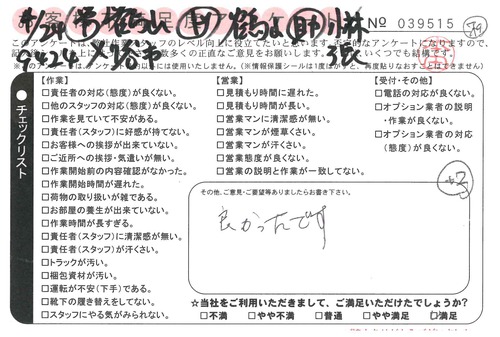 № 039515
このアンケートは、
スタッフのレベル向上に役立てたいと思います。
アンケートになりますので、
数の正直なご意見をお願いします。
いくつでも結構です。
チェックリスト
【作業】
□責任者の対応(態度)が良くない。
□他のスタッフの対応(態度)が良くない。
□作業を見ていて不安がある。
□責任者(スタッフ)に好感が持てない。
□お客様への挨拶が出来ていない。
□ご近所への挨拶・気遣いが無い。
□作業開始前の内容確認がなかった。
□作業開始時間が遅れた。
□荷物の取り扱いが雑である。
□お部屋の養生が出来ていない。
□作業時間が長すぎる。
□責任者(スタッフ)に清潔感が無い。
□責任者(スタッフ)が汗くさい。
□トラックが汚い。
□梱包資材が汚い。
□運転が不安(下手)である。
□靴下の履き替えをしてない。
□スタッフにやる気がみられない。
【営業】
□見積もり時間に遅れた。
□見積もり時間が長い。
□営業マンに清潔感が無い。
□営業マンが煙草くさい。
□営業マンが汗くさい。
□営業態度が良くない。
□営業の説明と作業が一致してない。
【受付・その他】
□電話の対応が良くない。
□オプション業者の説明
・作業が良くない。
□オプション業者の対応
(態度)が良くない。
その他、ご意見・ご要望等ありましたらお書き下さい。
良かったです
☆当社をご利用いただきまして、ご満足いただけたでしょうか?
□不満 □やや不満 □普通 □やや満足 □満足